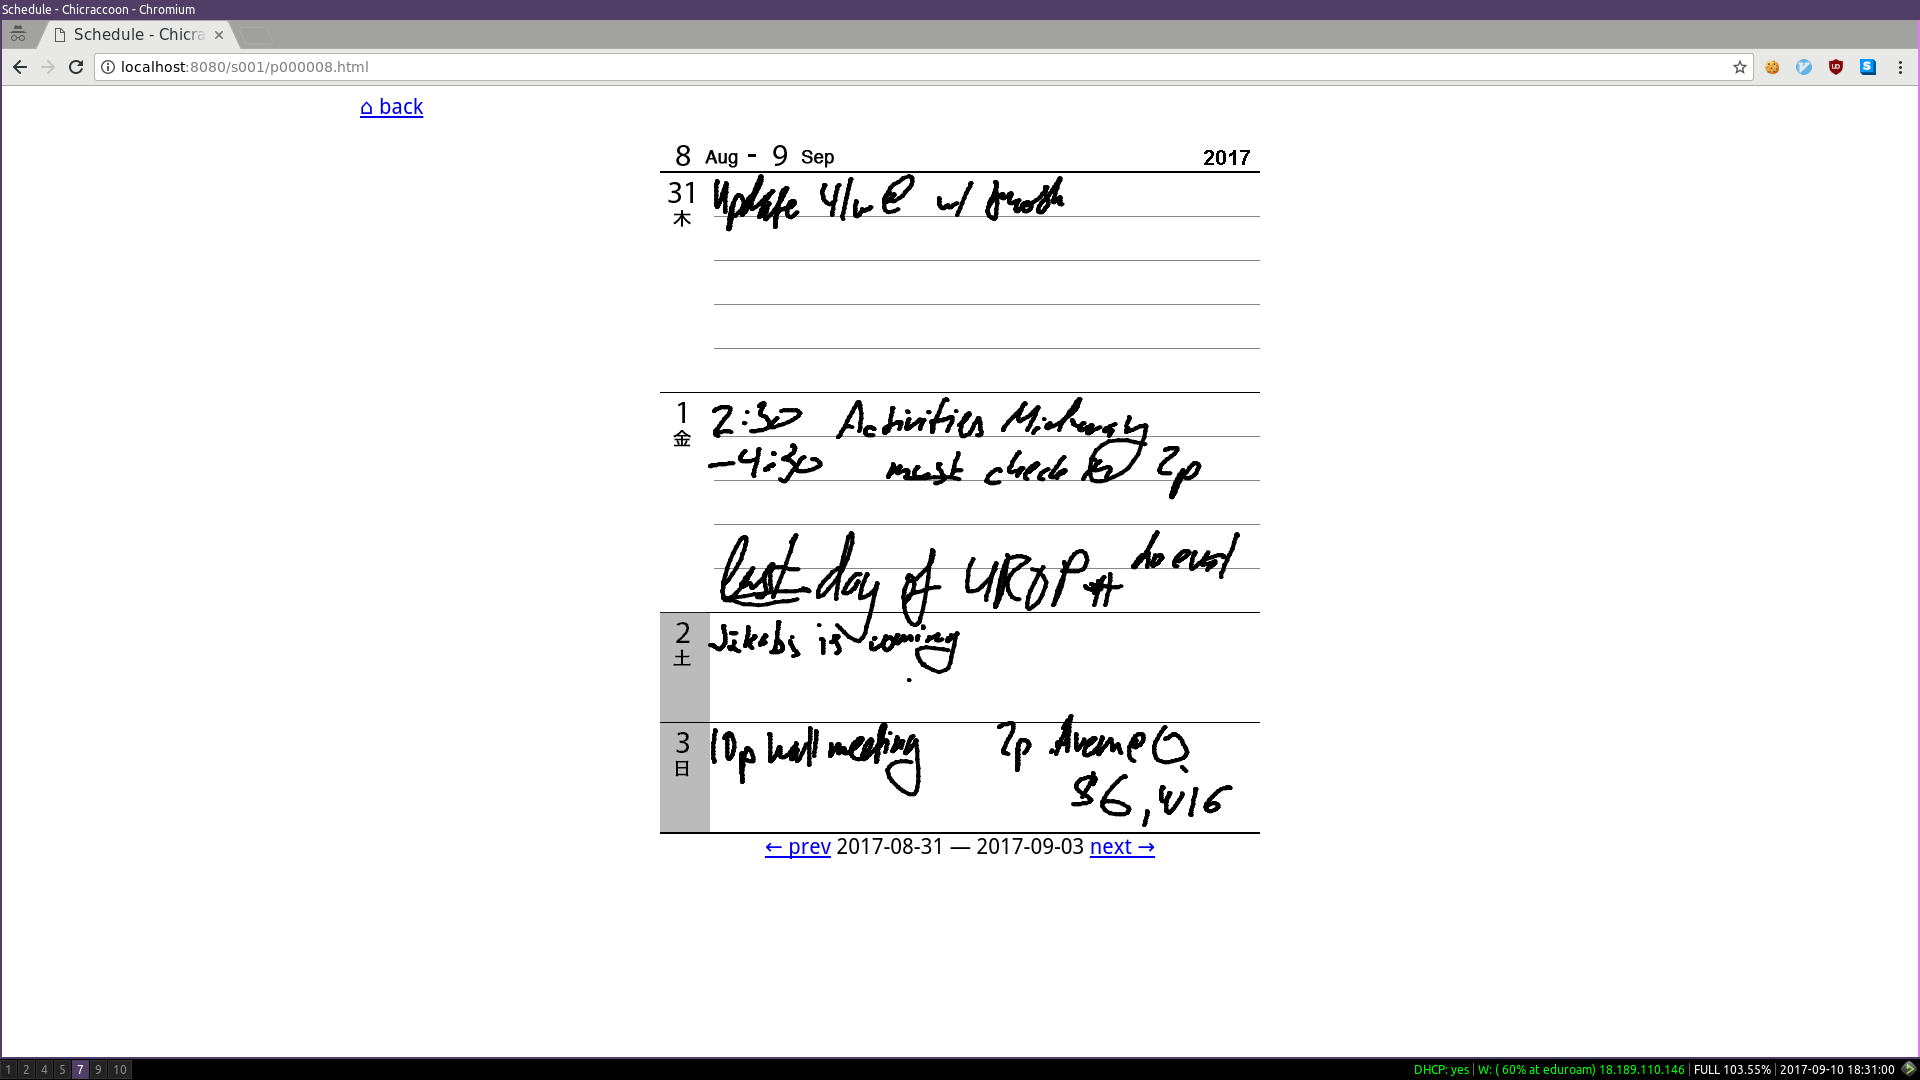 Schedule - Chicraccoon - Chromium
Schedule - Chicra
localhost:8080/s001/p000008.html
⌂ back
8 Aug - 9 Sep 2017
31 Update w/
木
1 2:30 Activities Midway
金 -4:30 must check in 2p
last day of UROP ++ no eval
2 Jēkabs is coming
土
3 10p hall meeting 2p Avenue Q
日 $6,416
← prev 2017-08-31 — 2017-09-03 next →
1 2 4 5 7 9 10 DHCP: yes | W: ( 60% at eduroam) 18.189.110.146 | FULL 103.55% | 2017-09-10 18:31:00